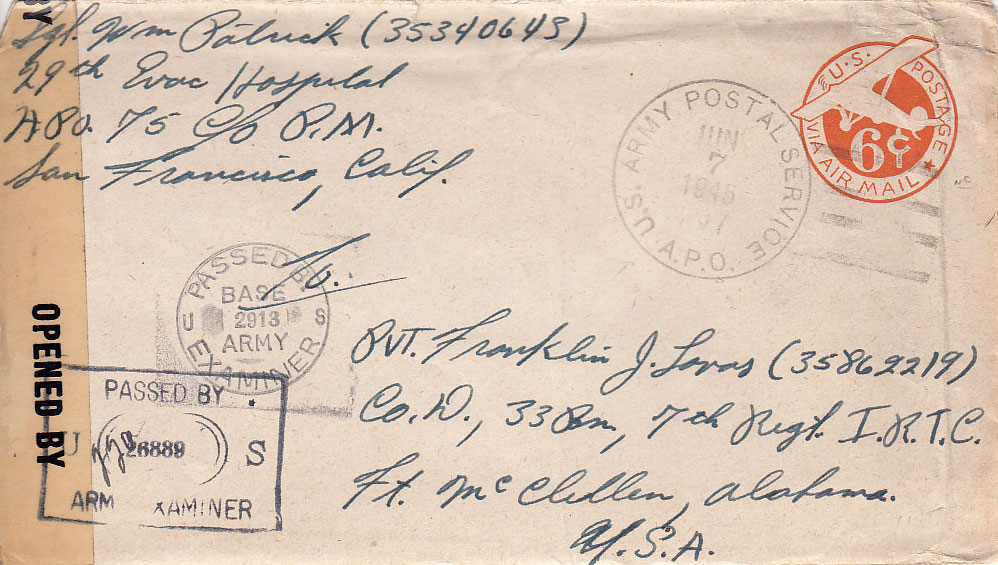 Sgt. Wm Patrick (35340643)
29th Evac Hospital
APO. 75 C/o P.M.
San Francisco, Calif.
U.S. POSTAGE
6¢
VIA AIR MAIL
U.S. ARMY POSTAL SERVICE
JUN
7
1945
A.P.O.
BY
OPENED BY
PASSED BY
BASE
U 2913 S
ARMY
EXAMINER
To.
PASSED BY
U 26889 S
ARM XAMINER
Pvt. Franklin J. Lovas (35862219)
Co. D, 33 Bn, 7th Regt. I.R.T.C.
Ft. McClellen, Alabama.
U.S.A.